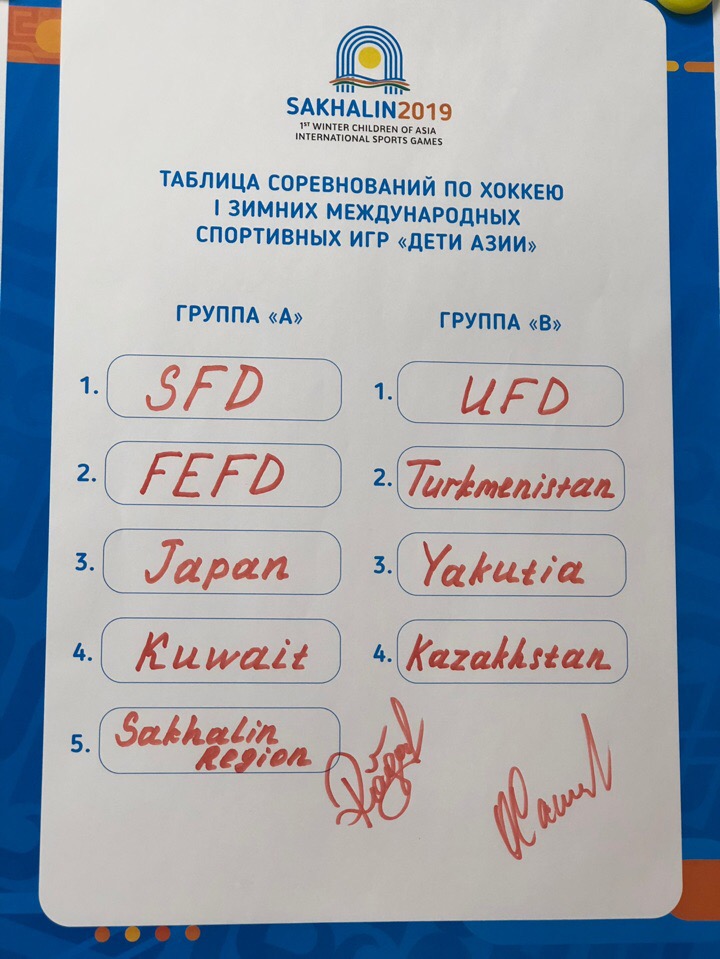 SAKHALIN2019
1ST WINTER CHILDREN OF ASIA
INTERNATIONAL SPORTS GAMES
ТАБЛИЦА СОРЕВНОВАНИЙ ПО ХОККЕЮ
I ЗИМНИХ МЕЖДУНАРОДНЫХ
СПОРТИВНЫХ ИГР «ДЕТИ АЗИИ»
ГРУППА «А»
1. SFD
2. FEFD
3. Japan
4. Kuwait
5. Sakhalin
Region
ГРУППА «В»
1. UFD
2. Turkmenistan
3. Yakutia
4. Kazakhstan